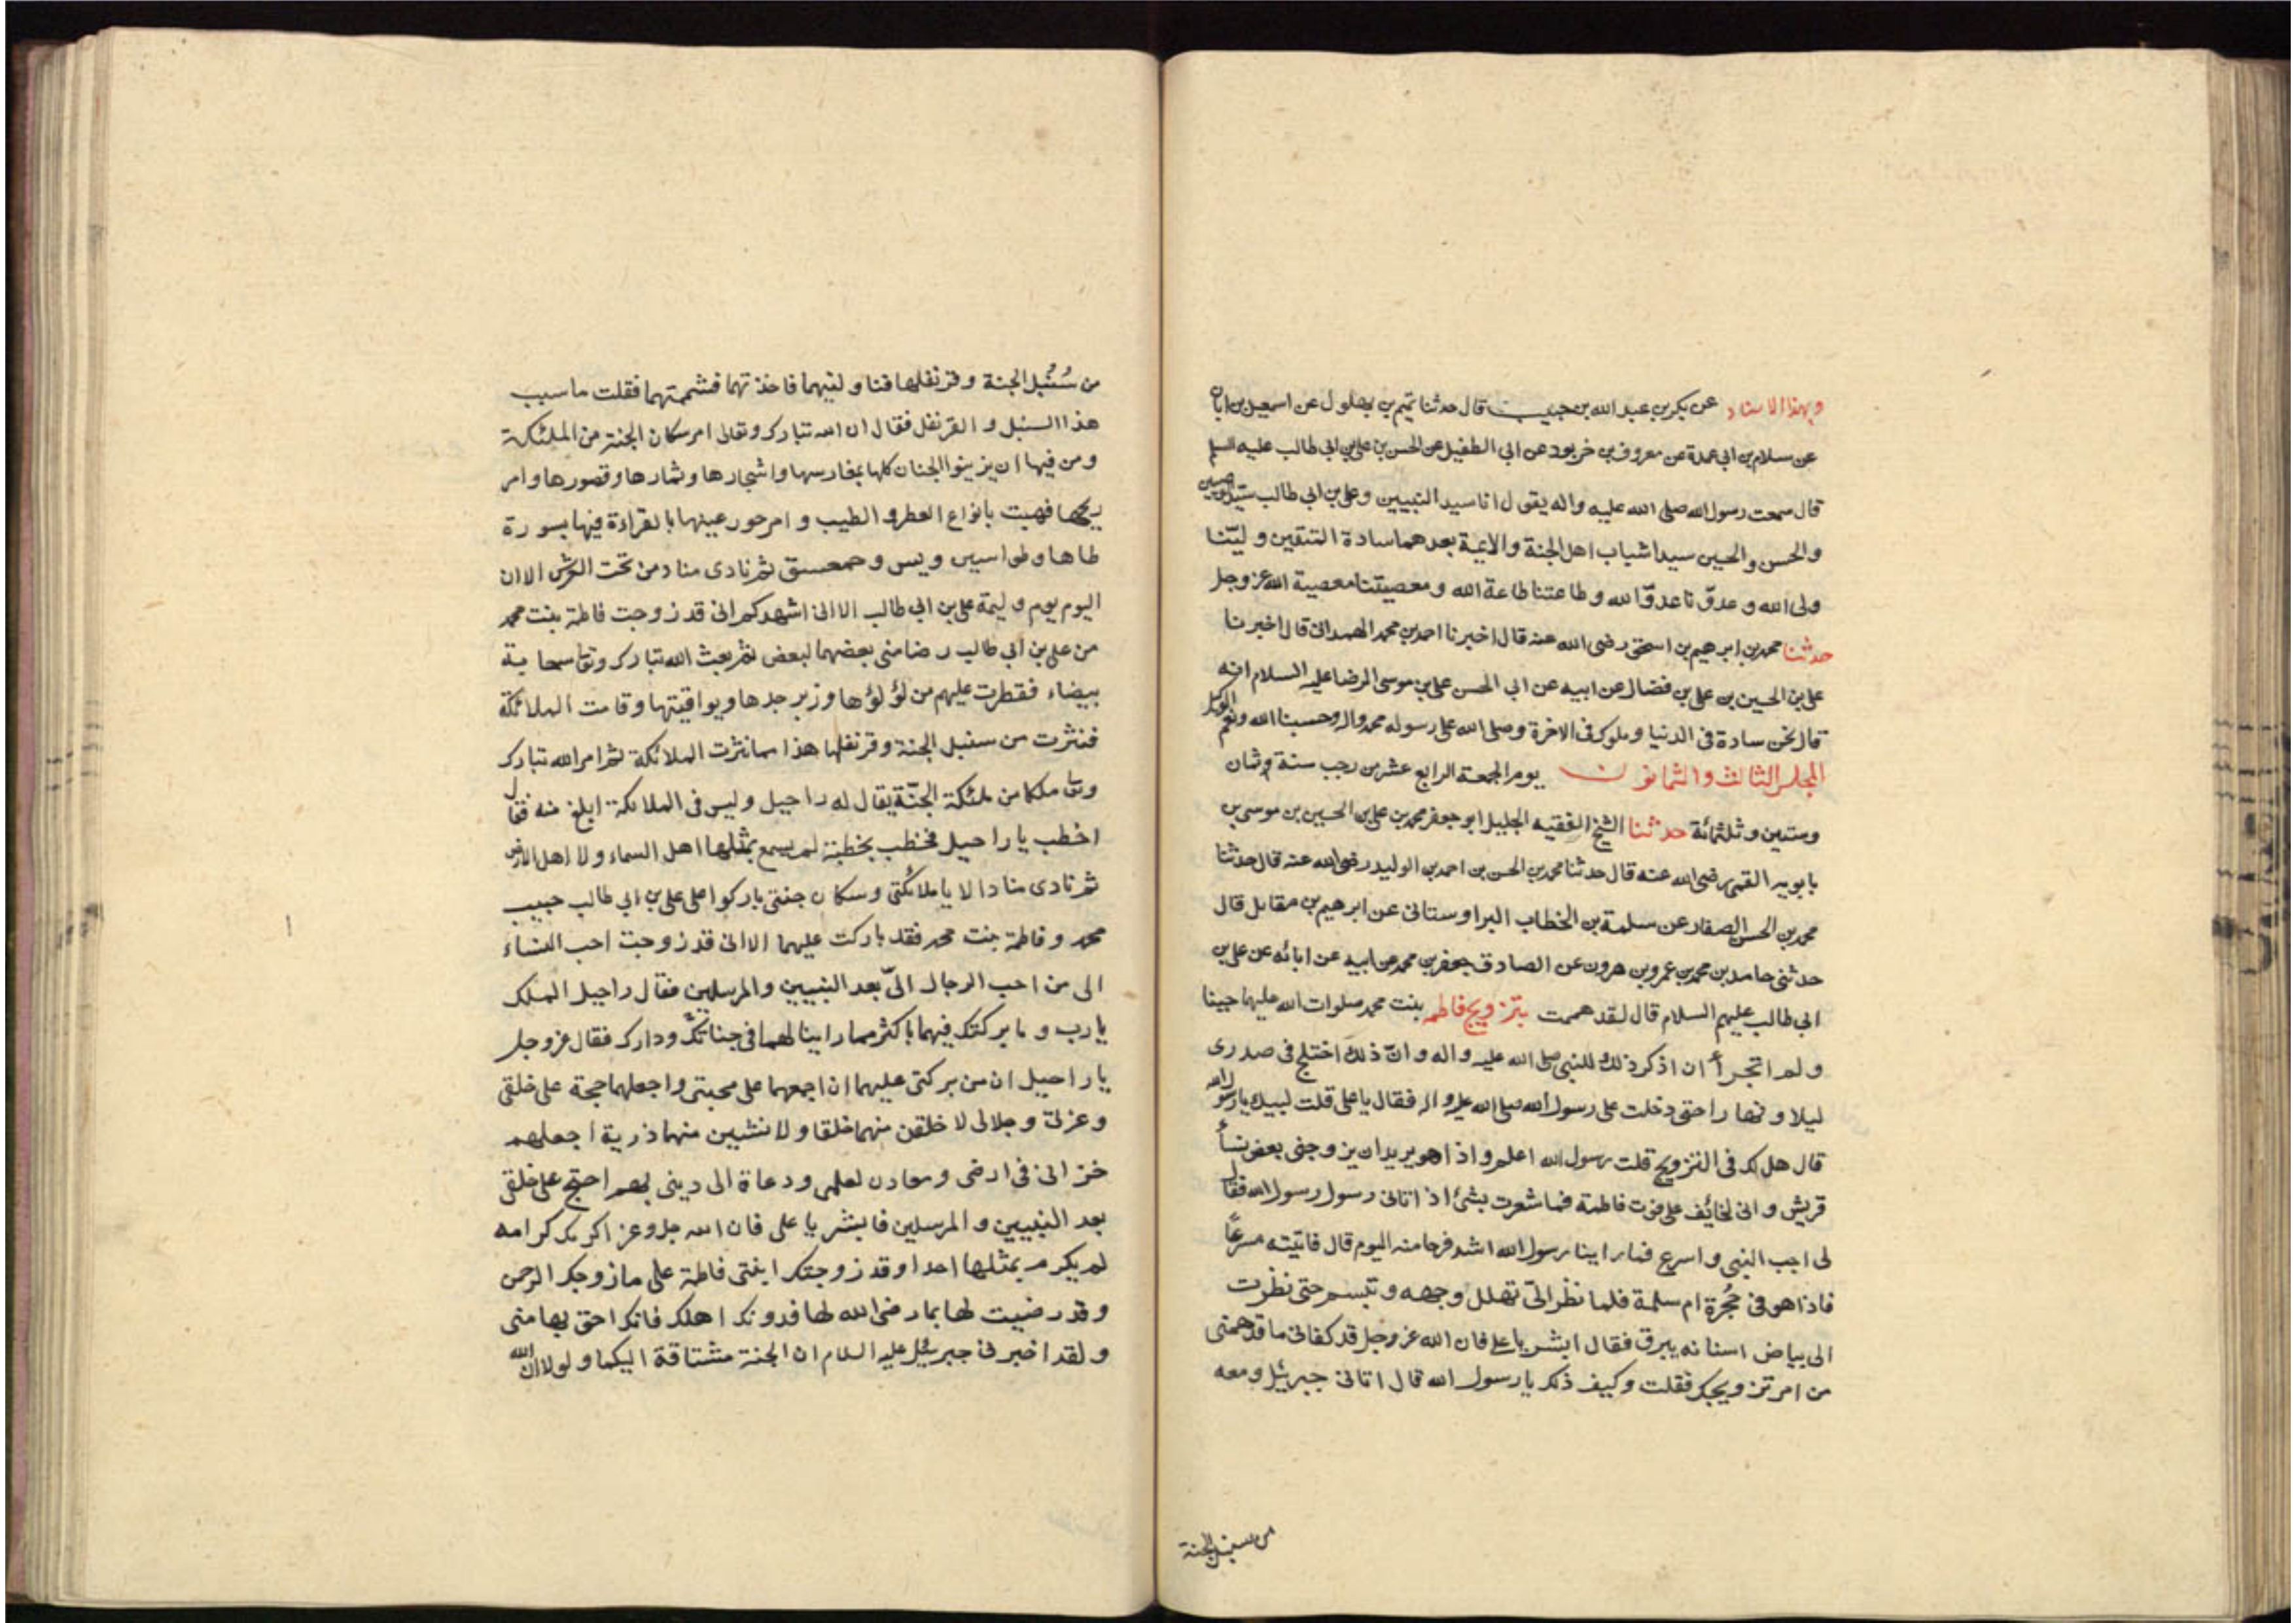 وبهذا الاسناد عن بكر بن عبد الله بن حبيب قال حدثنا تميم بن بهلول عن اسمعيل بن ابان
عن سلام بن ابي عمدة عن معروف بن خربوذ عن ابي الطفيل عن الحسن بن علي بن ابي طالب عليه السلم
قال سمعت رسول الله صلى الله عليه واله يقول انا سيد النبيين وعلي بن ابي طالب سيد الوصيين
والحسن والحسين سيدا شباب اهل الجنة والايمة بعدهما سادة المتقين وليّنا
ولي الله وعدوّنا عدوّ الله وطاعتنا طاعة الله ومعصيتنا معصية الله عز وجل
حدثنا محمد بن ابرهيم بن اسحق رضى الله عنه قال اخبرنا احمد بن محمد الهمداني قال اخبرنا
علي بن الحسين بن علي بن فضال عن ابيه عن ابي الحسن علي بن موسى الرضا عليه السلام انه
قال نحن سادة في الدنيا وملوك في الاخرة وصلى الله على رسوله محمد واله وحسبنا الله ونعم الوكيل
المجلس الثالث والثمانون يوم الجمعة الرابع عشر من رجب سنة ثمان
وستين وثلثمائة حدثنا الشيخ الفقيه الجليل ابو جعفر محمد بن علي بن الحسين بن موسى بن
بابويه القمي رضى الله عنه قال حدثنا محمد بن الحسن بن احمد بن الوليد رضى الله عنه قال حدثنا
محمد بن الحسن الصفار عن سلمة بن الخطاب البراوستاني عن ابرهيم بن مقاتل قال
حدثني حامد بن محمد بن عمرو بن هرون عن الصادق جعفر بن محمد عن ابيه عن ابائه عن علي بن
ابي طالب عليهم السلام قال لقد هممت بتزويج فاطمه بنت محمد صلوات الله عليها حينا
ولم اتجرأ أن اذكر ذلك للنبي صلى الله عليه واله وانّ ذلك اختلج في صدرى
ليلا ونهارا حتى دخلت على رسول الله صلى الله عليه واله فقال يا علي قلت لبيك يا رسول الله
قال هل لك في التزويج قلت رسول الله اعلم واذا هو يريد ان يزوجني بعض نسأ
قريش واني لخائف على فوت فاطمة فما شعرت بشئ اذ اتاني رسول رسول الله فقال
لى اجب النبي واسرع فما راينا رسول الله اشد فرحا منه اليوم قال فاتيته مسرعًا
فاذا هو في حُجرة ام سلمة فلما نظر الىّ تهلل وجهه وتبسم حتى نظرت
الى بياض اسنانه يبرق فقال ابشر يا علي فان الله عز وجل قد كفاني ما قد همني
من امر تزويجك فقلت وكيف ذلك يا رسول الله قال اتاني جبرئيل ومعه
من سنبل الجنة
من سُنْبُل الجنة وقرنفلها فناولنيهما فاخذتهما فشممتهما فقلت ما سبب
هذا السنبل والقرنفل فقال ان الله تبارك وتعالى امر سكان الجنة من الملئكة
ومن فيها ان يزينوا الجنان كلها بمغارسها واشجارها وثمارها وقصورها وامر
ريحها فهبت بانواع العطر والطيب وامر حور عينها بالقراءة فيها بسورة
طاها وطواسين ويس وحمعسق ثم نادى مناد من تحت العرش الا ان
اليوم يوم وليمة علي بن ابي طالب الا اني اشهدكم اني قد زوجت فاطمة بنت محمد
من علي بن ابي طالب رضا مني بعضهما لبعض ثم بعث الله تبارك وتعا سحابة
بيضاء فقطرت عليهم من لؤلؤها وزبرجدها ويواقيتها وقامت الملائكة
فنثرت من سنبل الجنة وقرنفلها هذا مما نثرت الملائكة ثم امر الله تبارك
وتعا ملكا من ملئكة الجنّة يقال له راحيل وليس في الملائكة ابلغ منه فقال
اخطب يا راحيل فخطب بخطبة لم يسمع بمثلها اهل السماء ولا اهل الارض
ثم نادى مناد الا يا ملائكتي وسكان جنتي باركوا على علي بن ابي طالب حبيب
محمد وفاطمة بنت محمد فقد باركت عليهما الا اني قد زوجت احب النساء
الى من احب الرجال الىّ بعد النبيين والمرسلين فقال راحيل الملك
يا رب وما بركتك فيهما باكثر مما راينا لهما في جناتك ودارك فقال عز وجل
يا راحيل ان من بركتي عليهما ان اجمعهما على محبتي واجعلهما حجة على خلقي
وعزتي وجلالى لاخلقن منهما خلقا ولانشين منهما ذرية اجعلهم
خزاني في ارضى ومعادن لعلمي ودعاة الى ديني بهم احتج على خلقي
بعد النبيين والمرسلين فابشر يا على فان الله جل وعز اكرمك كرامه
لم يكرم بمثلها احدا وقد زوجتك ابنتي فاطمة على ما زوجك الرحمن
وقد رضيت لها بما رضى الله لها فدونك اهلك فانك احق بها منى
ولقد اخبرني جبرئيل عليه السلام ان الجنة مشتاقة اليكما ولولا ان الله